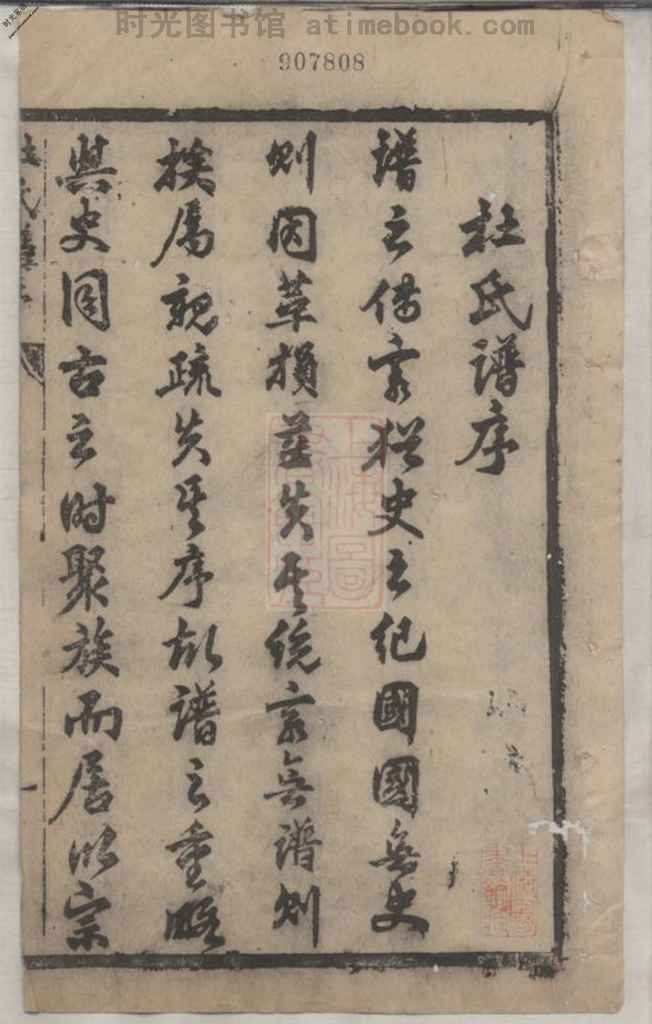 时光图书馆 atimebook.com
907808
杜氏譜序
譜之傳家猶史之紀國國無史
則因革損益失其統家無譜則
族屬親疏失其序故譜之重略
與史同古之時聚族而居以宗